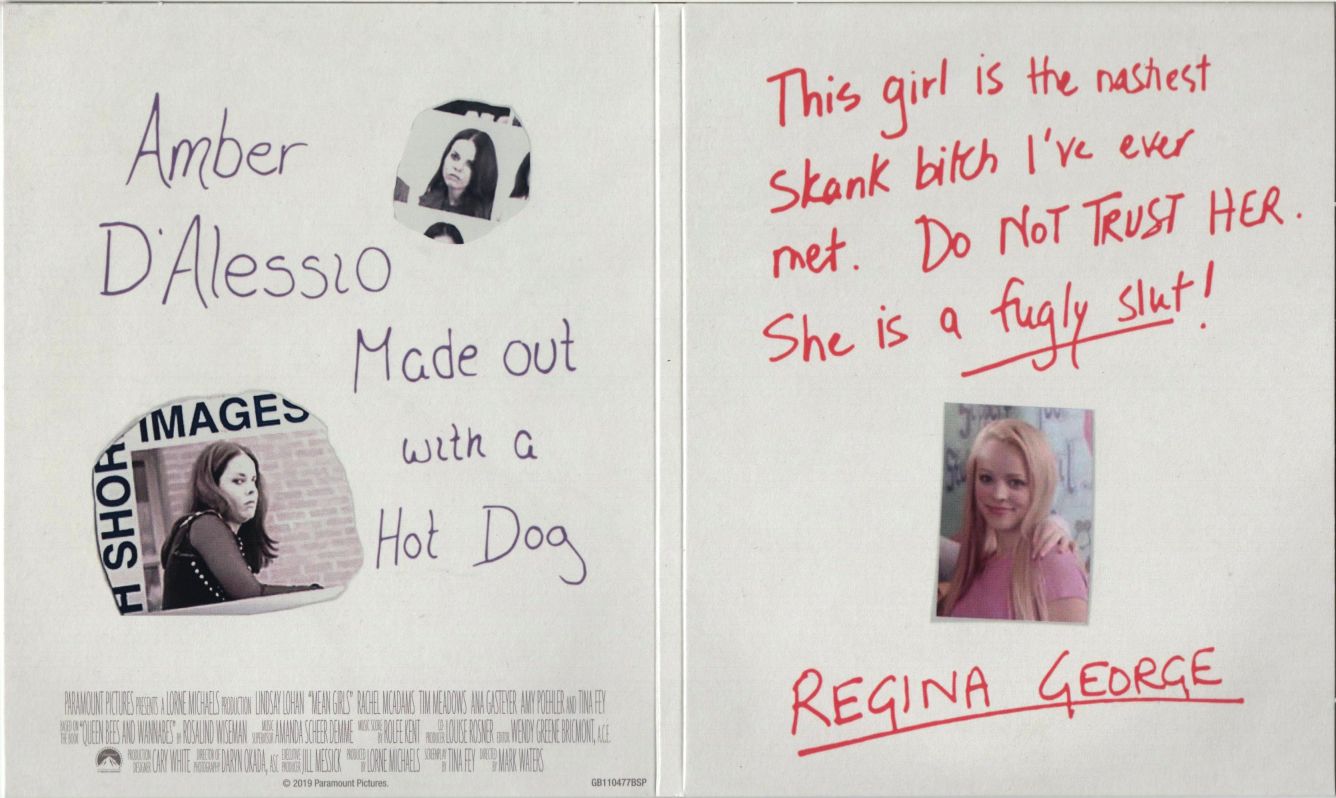 Amber
D'Alessio
Made out
with a
Hot Dog
IMAGES
H SHOR
PARAMOUNT PICTURES PRESENTS A LORNE MICHAELS PRODUCTION LINDSAY LOHAN "MEAN GIRLS" RACHEL MCADAMS TIM MEADOWS ANA GASTEYER AMY POEHLER AND TINA FEY
BASED ON THE BOOK "QUEEN BEES AND WANNABES" BY ROSALIND WISEMAN MUSIC SUPERVISOR AMANDA SCHEER DEMME MUSIC SCORE ROLFE KENT CO PRODUCER LOUISE ROSNER EDITOR WENDY GREENE BRICMONT, A.C.E.
PRODUCTION DESIGNER CARY WHITE DIRECTOR OF PHOTOGRAPHY DARYN OKADA, ASC EXECUTIVE PRODUCER JILL MESSICK PRODUCED BY LORNE MICHAELS SCREENPLAY BY TINA FEY DIRECTED BY MARK WATERS
© 2019 Paramount Pictures.
GB110477BSP
This girl is the nastiest
Skank bitch I've ever
met. Do NOT TRUST HER.
She is a fugly slut!
REGINA GEORGE